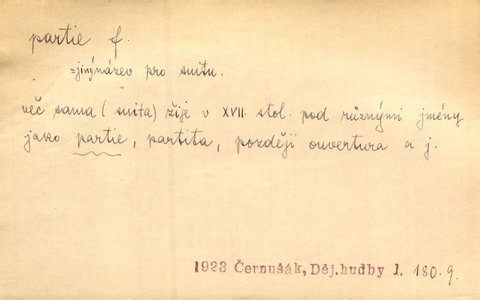 partie f.
=jiný název pro suitu.
věc sama (suita) žije v XVII. stol. pod různými jmény
jako partie, partita, později ouvertura a j.
1923 Černušák, Děj. hudby 1. 180.9.